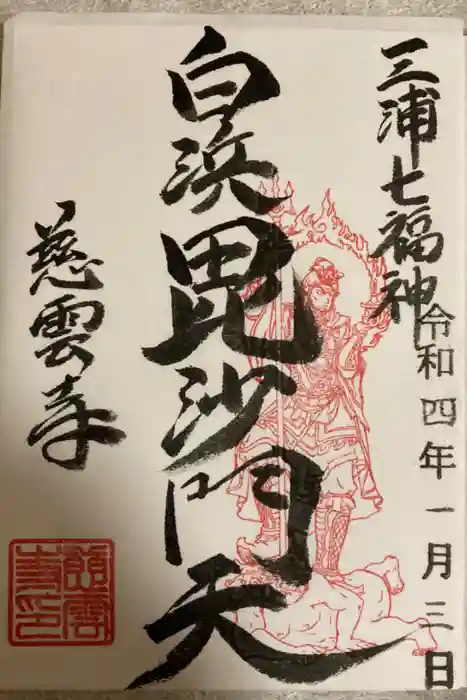 三浦七福神
令和四年一月三日
白浜毘沙門天
慈雲寺
慈雲寺印